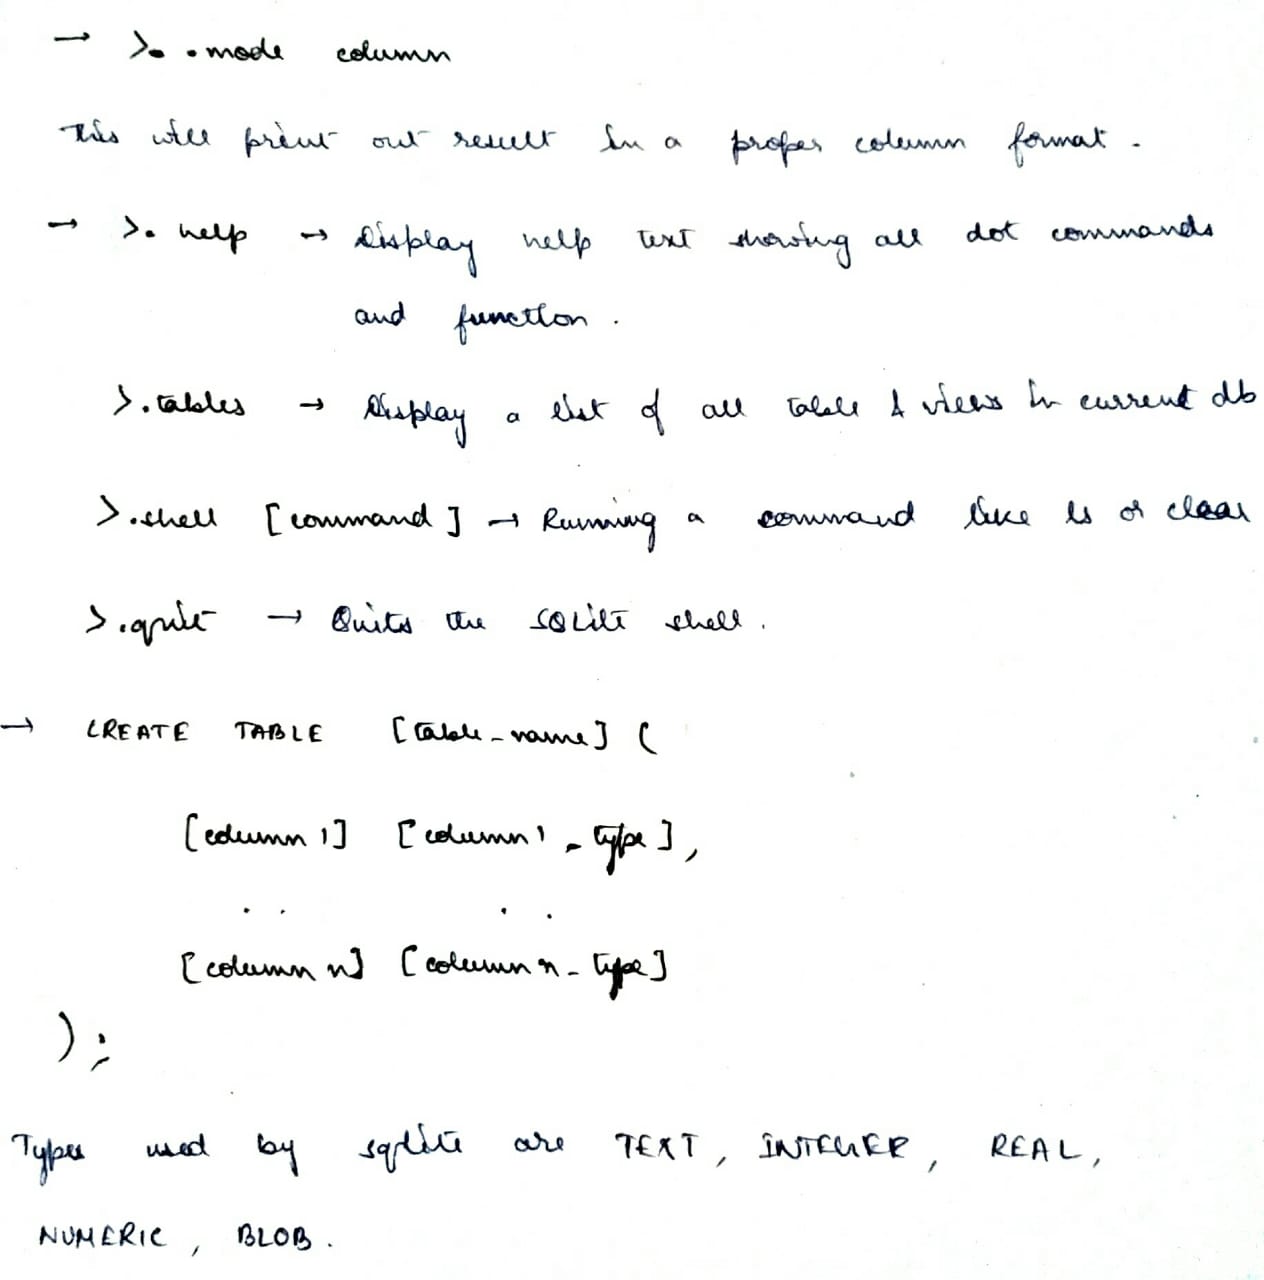 → >. .mode column
This will print out result in a proper column format.
→ >. help → Display help text showing all dot commands
and function.
>.tables → Display a list of all table & views in current db
>.shell [command] → Running a command like ls or clear
>.quit → Quits the SQLite shell.
→ CREATE TABLE [table_name] (
[column 1] [column1_type],
. . . .
[column n] [column n_type]
);
Types used by sqlite are TEXT, INTEGER, REAL,
NUMERIC, BLOB.